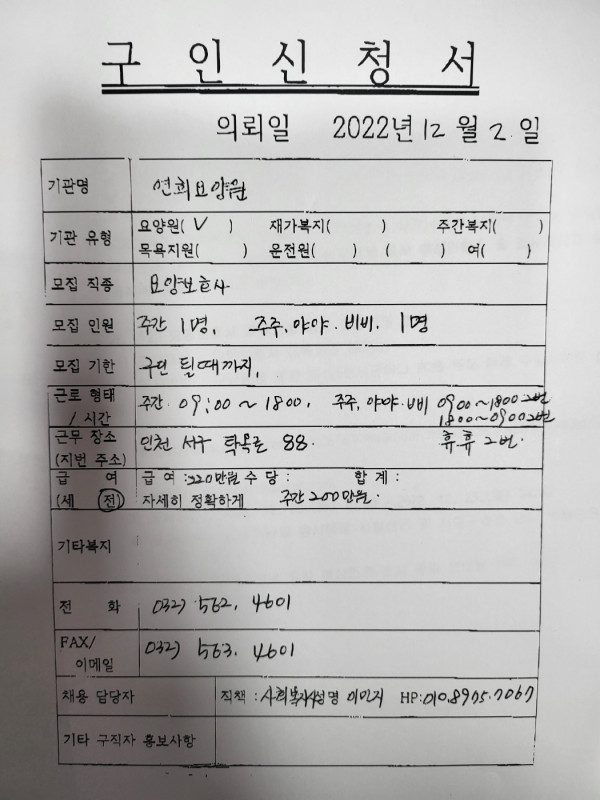 구 인 신 청 서
의뢰일 2022년 12 월 2 일
기관명 연희요양원
기관 유형 요양원( V ) 재가복지( ) 주간복지( )
목욕지원( ) 운전원( ) ( ) 여( )
모집 직종 요양보호사
모집 인원 주간 1명, 주주, 야야, 비비. 1명
모집 기한 구인 될때까지,
근로 형태 / 시간 주간 09:00 ~ 1800, 주주, 야야, 비비 0900~1800 2번
1800~0900 2번
휴휴 2번
근무 장소 (지번 주소) 인천 서구 탁옥로 88.
급 여 급 여 :220만원 수 당 : 합 계 :
(세 전) 자세히 정확하게 주간 200만원.
기타복지
전 화 032) 562, 4601
FAX/ 이메일 032) 563. 4601
채용 담당자 직책 : 사회복지사 성명 HP:010.8975.7067
기타 구직자 홍보사항